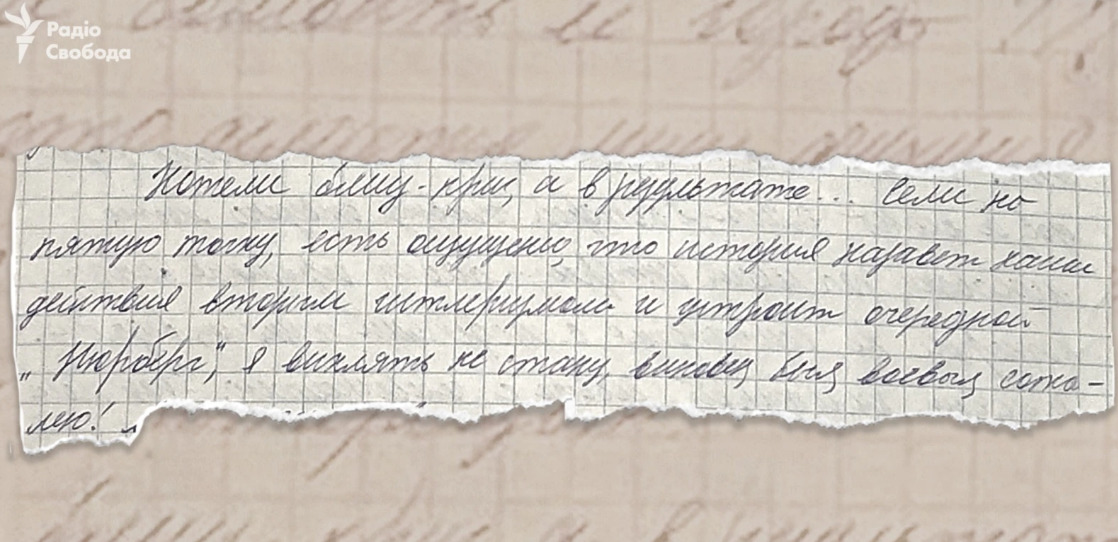 Радіо
Свобода
Хотели блиц-криг, а в результате... Сели на
пятую точку, есть ощущение, что история назовет наши
действия вторым гитлеризмом и устроит очередной
„Нюрберг", я вилять не стану, виновен, был, воевал, сожа-
лею!